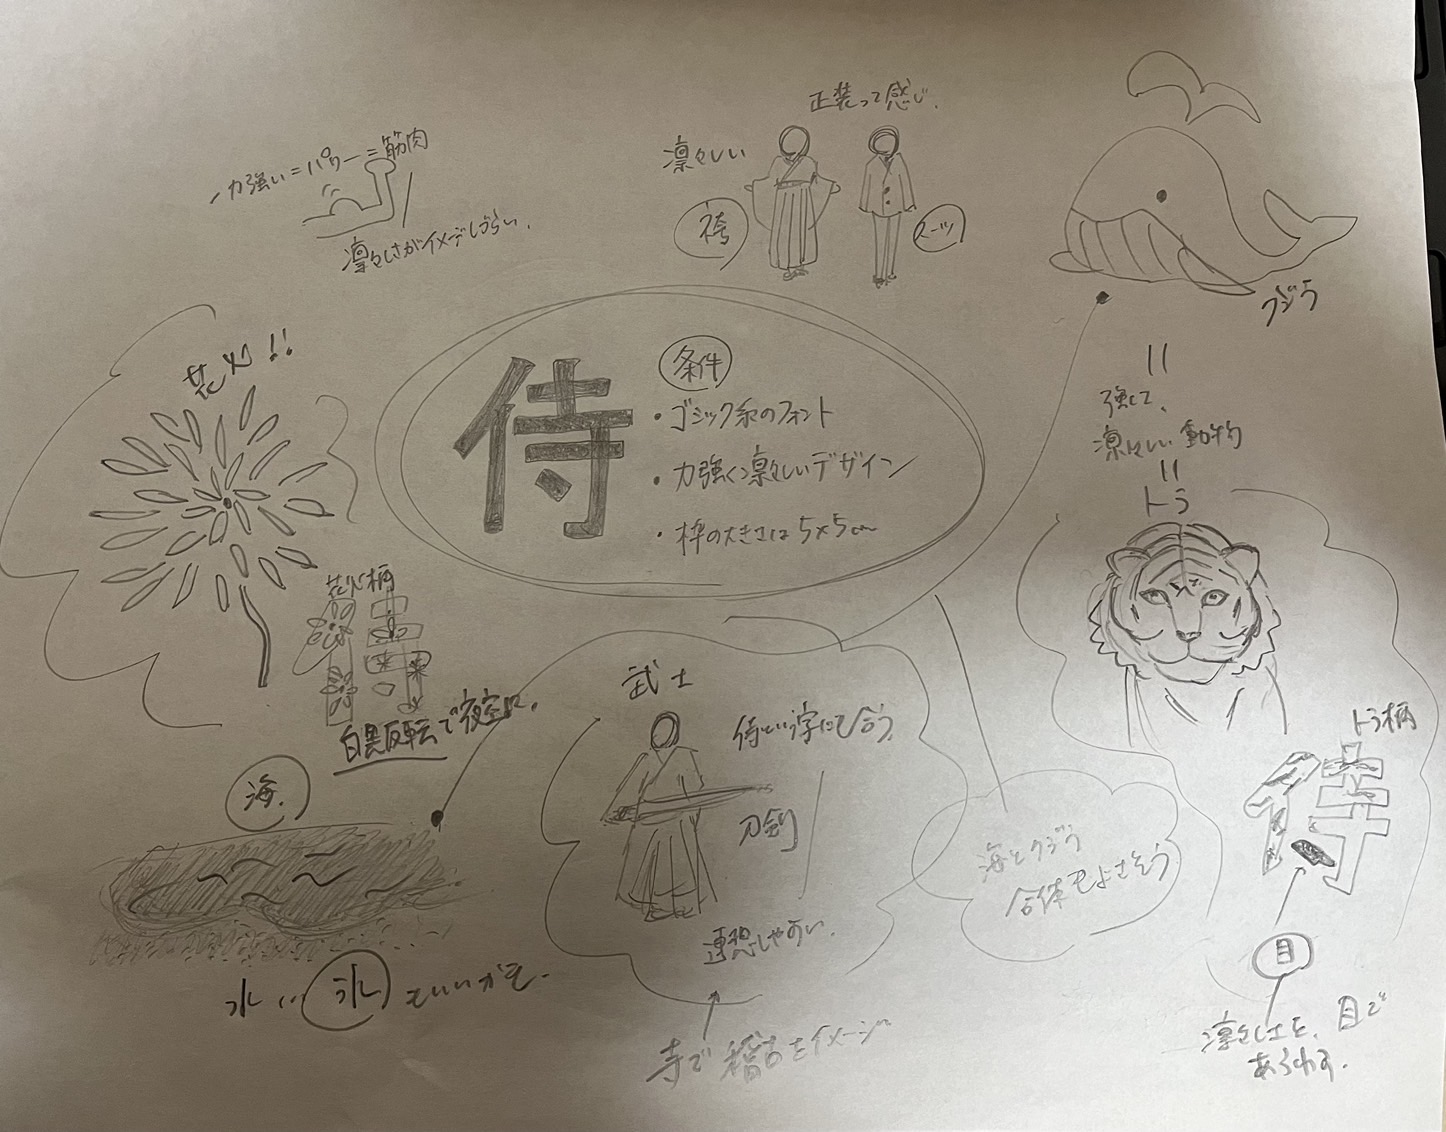 力強い=パワー=筋肉
凛々しさがイメージしづらい.
正装って感じ.
凛々しい
袴
スーツ
クジラ
=
強くて、
凛々しい動物
=
トラ
侍
条件
・ゴシック系のフォント
・力強く凛々しいデザイン
・枠の大きさは5×5cm
花火!!
花火柄
白黒反転で夜空に.
海.
水...氷もいいかも.
武士
侍という字にも合う.
刀剣
連想しやすい.
寺で稽古をイメージ
海とクジラ
合体もよさそう
トラ柄
侍
目
凛々しさを、目で
あらわす.